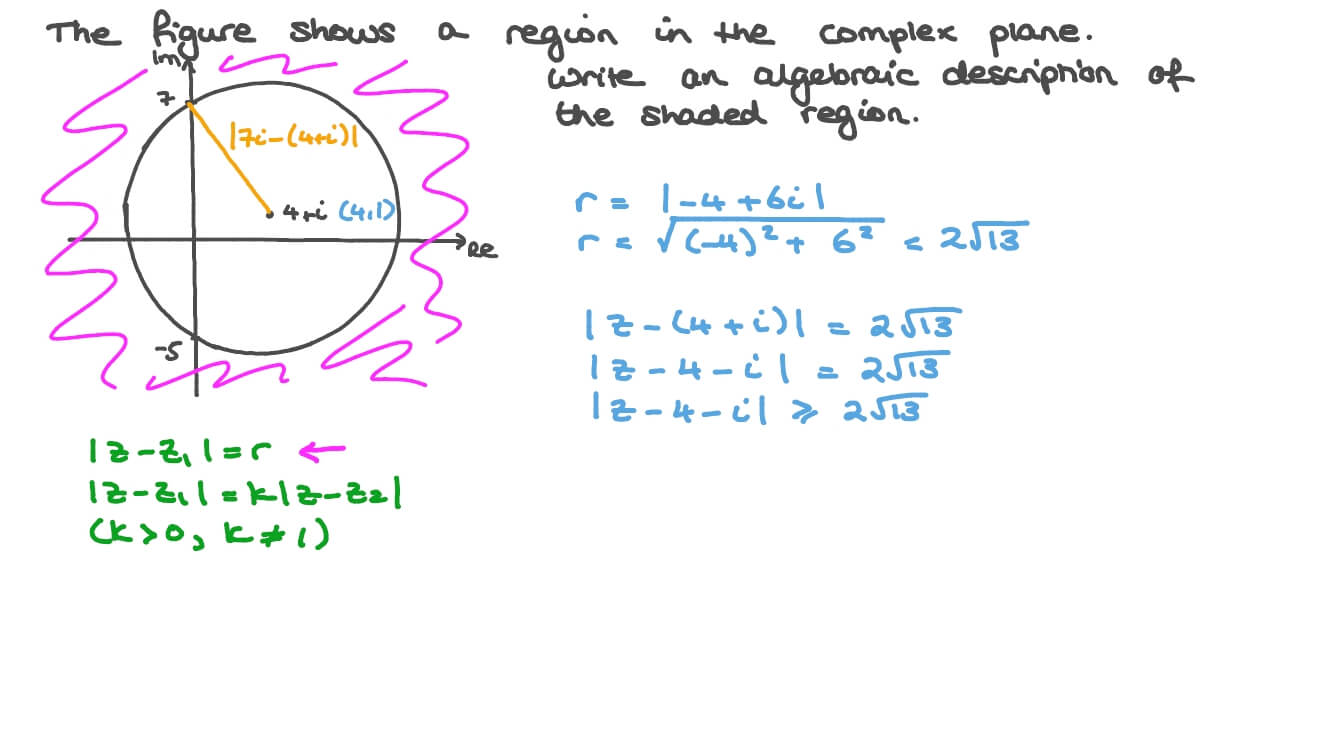 The figure shows a region in the complex plane.
Write an algebraic description of
the shaded region.
Im
7
|7i-(4+i)|
4+i (4,1)
Re
-5
r = |-4+6i|
r = √((-4)²+ 6²) = 2√13
|z-(4+i)| = 2√13
|z-4-i| = 2√13
|z-4-i| ⩾ 2√13
|z-z₁|=r ←
|z-z₁|=k|z-z₂|
(k>0, k≠1)